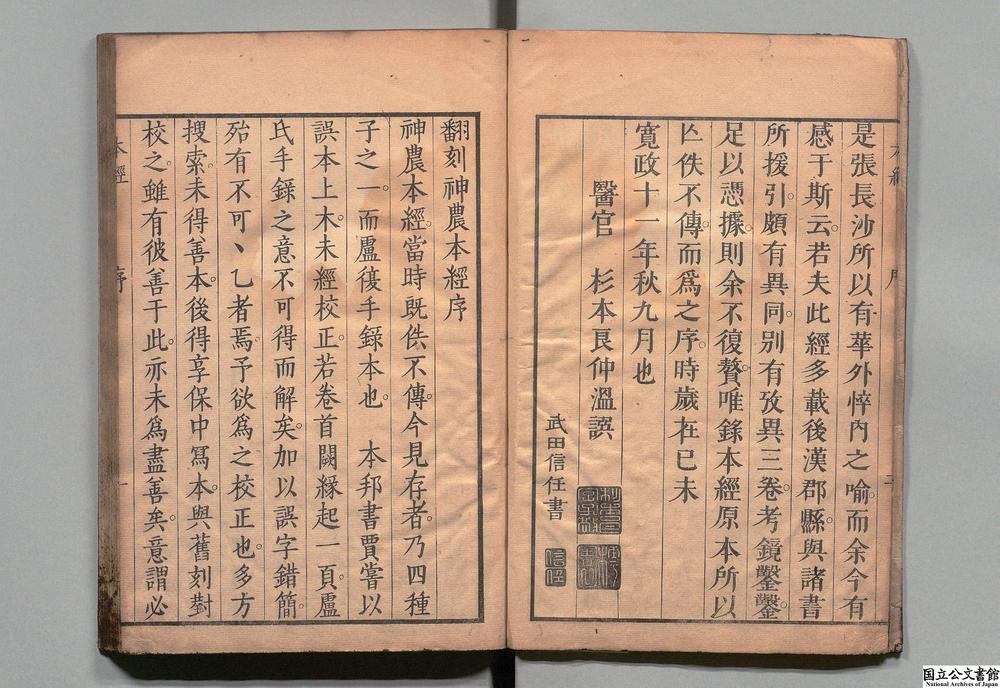 是張長沙所以有華外悴内之喻而余今有
感于斯云。若夫此經多載後漢郡縣。與諸書
所援引。頗有異同。別有攷異三卷。考鏡鑿鑿。
足以憑據。則余不復贅。唯錄本經原本所以
亾佚不傳。而爲之序。時歲在己未
寬政十一年秋九月也
醫官 杉本良仲溫誤
武田信任書
翻刻神農本經序
神農本經。當時既佚不傳。今見存者。乃四種
子之一。而盧復手錄本也。 本邦書賈嘗以
誤本上木。未經校正。若卷首闕緣起一頁。盧
氏手錄之意不可得而解矣。加以誤字錯簡。
殆有不可丶乙者焉。予欲爲之校正也。多方
搜索。未得善本。後得享保中寫本。與舊刻對
校之。雖有彼善于此。亦未爲盡善矣。意謂必
本經 序 一
国立公文書館
National Archives of Japan